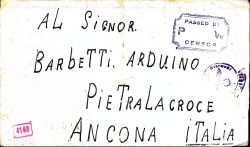 AL SIGNOR.
PASSED BY
P W
CENSOR
BARBETTI. ARDUINO
PIETRALACROCE
4148
ANCONA ITALIA